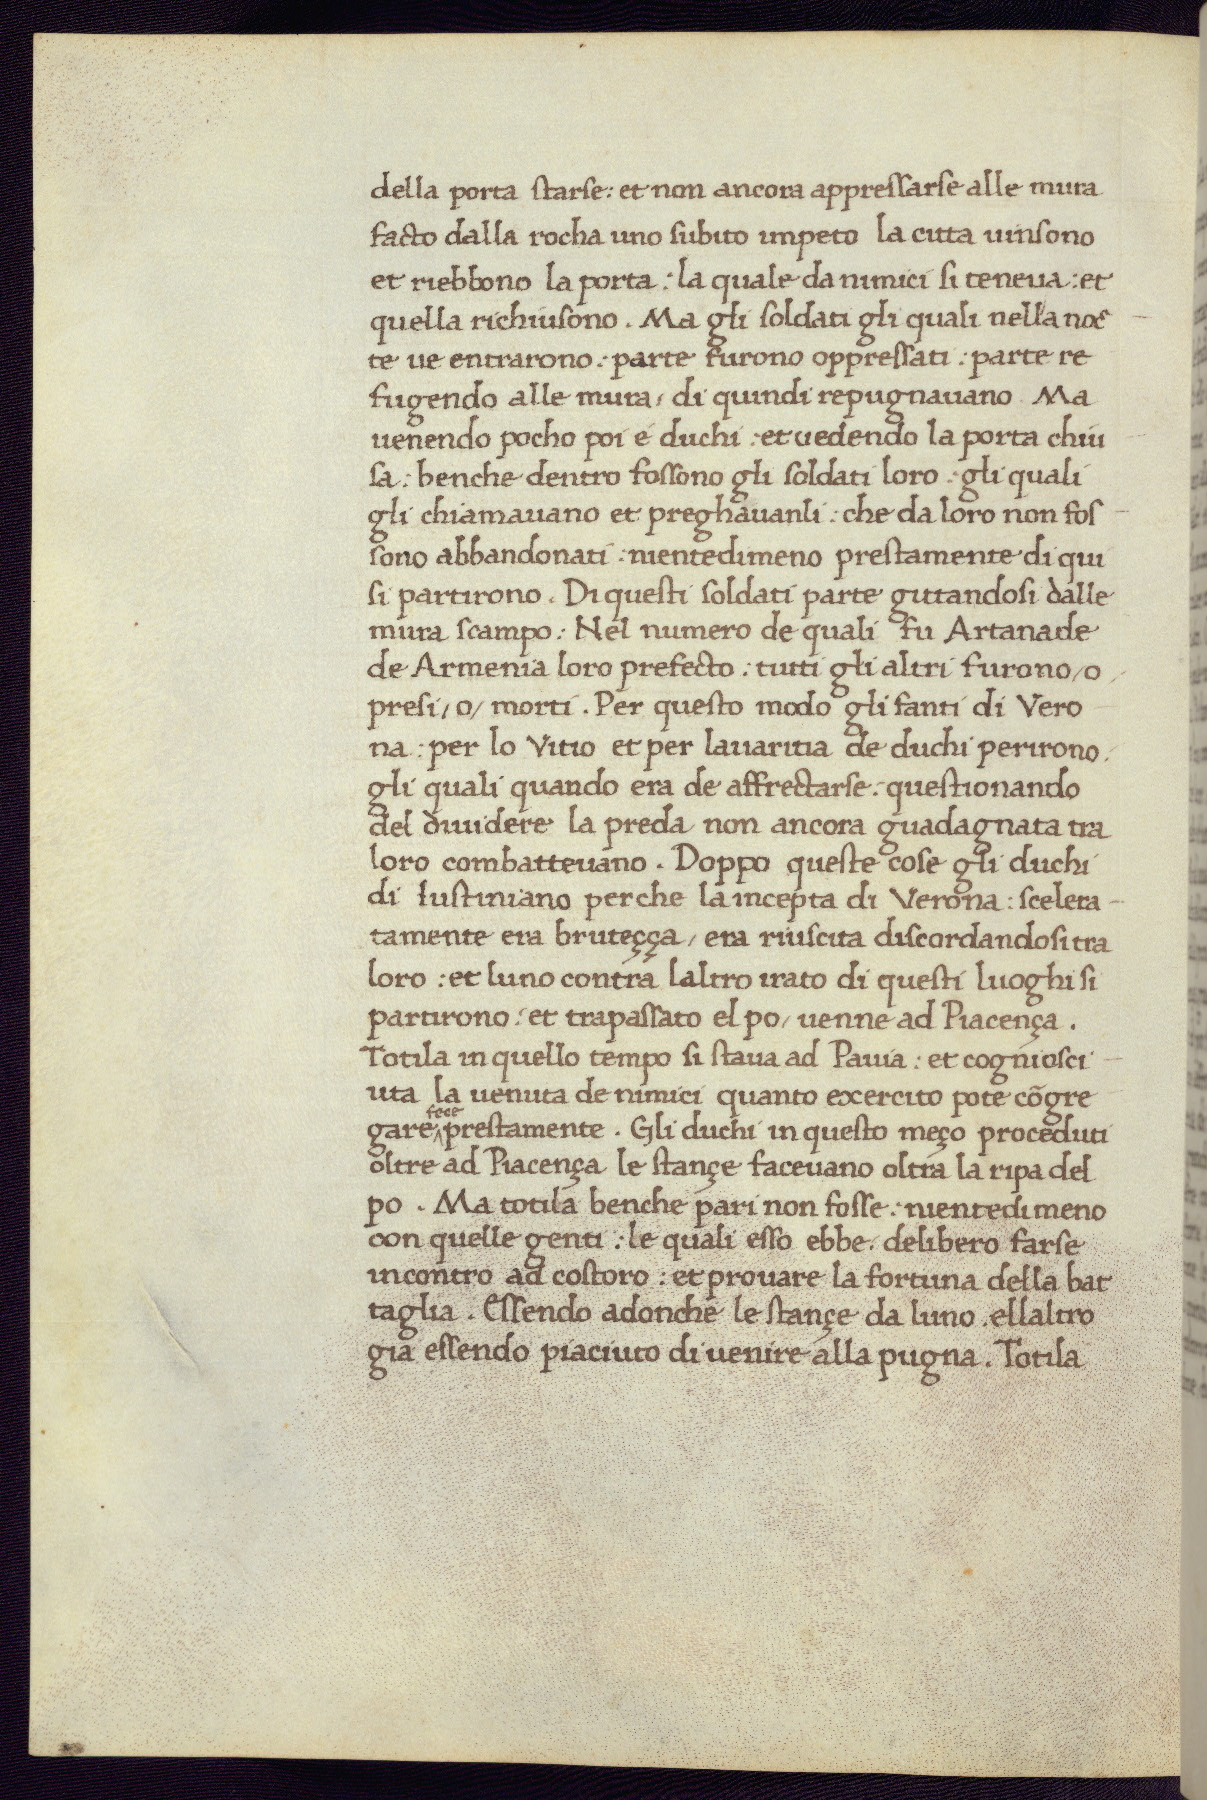 della porta starse: et non ancora appressarse alle mura
facto dalla rocha uno subito impeto la citta uinsono
et riebbono la porta: la quale da nimici si teneua: et
quella richiusono. Ma gli soldati gli quali nella noc
te ue entrarono: parte furono oppressati: parte re
fugendo alle mura/ di quindi repugnauano Ma
uenendo pocho poi e duchi: et uedendo la porta chiu
sa: benche dentro fossono gli soldati loro: gli quali
gli chiamauano et preghauanli: che da loro non fos
sono abbandonati: nientedimeno prestamente di qui
si partirono. Di questi soldati parte gittandosi dalle
mura scampo: Nel numero de quali fu Artanade
de Armenia loro prefecto: tutti gli altri furono/o
presi/o/ morti. Per questo modo gli fanti di Vero
na: per lo Vitio et per lauaritia de duchi perirono:
gli quali quando era de affrectarse: questionando
del diuidere la preda non ancora guadagnata tra
loro combatteuano. Doppo queste cose gli duchi
di Iustiniano perche la incepta di Verona: scelera
tamente era bruteçça/ era riuscita discordandosi tra
loro: et luno contra laltro irato di questi luoghi si
partirono: et trapassato el po/ uenne ad Piacença.
Totila in quello tempo si staua ad Pauia: et cogniosci
uta la uenuta de nimici quanto exercito pote cõgre
gare fece prestamente. Gli duchi in questo meço proceduti
oltre ad Piacença le stançe faceuano oltra la ripa del
po. Ma totila benche pari non fosse: nientedimeno
con quelle genti: le quali esso ebbe. delibero farse
incontro ad costoro: et prouare la fortuna della bat
taglia. Essendo adonche le stançe da luno. ellaltro
gia essendo piaciuto di uenire alla pugna. Totila